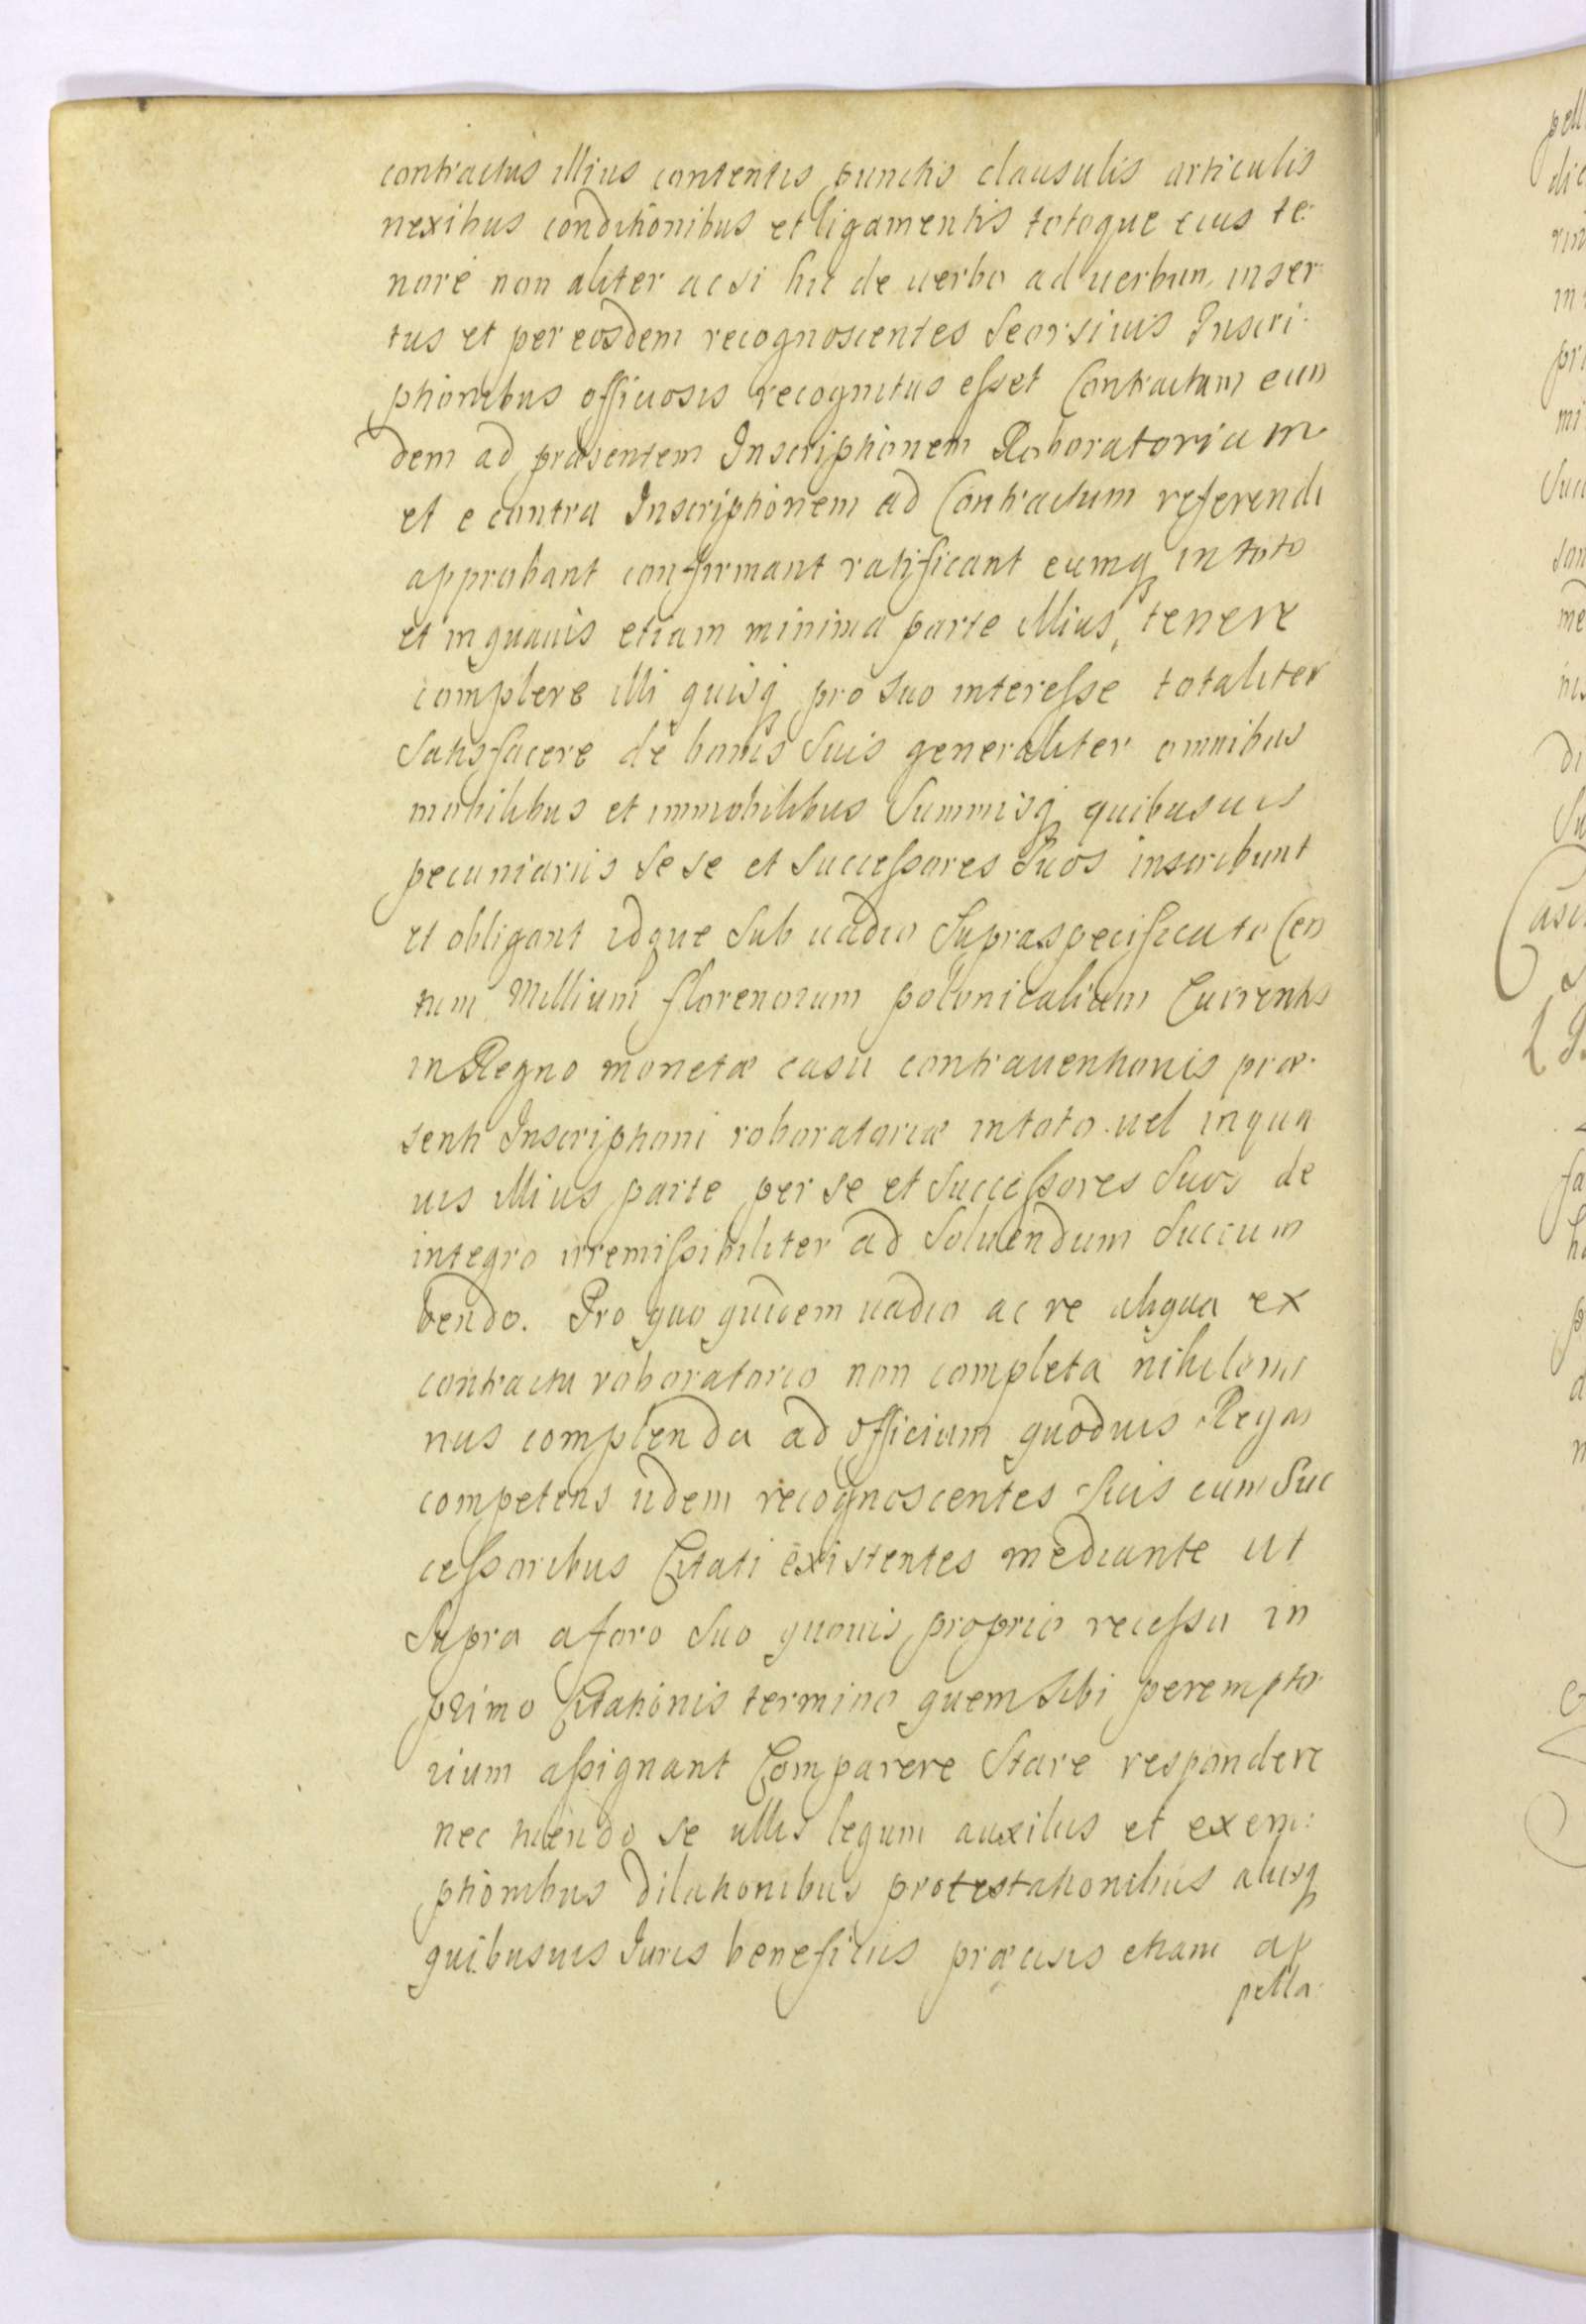 contractus illius contentis punctis clausulis articulis
nexibus conditionibus et ligamentis totoque eius te:
nore non aliter acsi hic de uerbo ad uerbum inser:
tus et per eosdem recognoscentes Seorsiuis Inscri:
ptionibus officiosis recognitus esset Contractum eun
dem ad præsentem Inscriptionem Roboratoriam
et e contra Inscriptionem ad Contractum referendi
approbant confirmant ratificant eumq in toto
et in quauis etiam minima parte illius, tenere
complere illi quisq pro suo interesse totaliter
Satisfacere de bonis Suis generaliter omnibus
mobilibus et immobilibus Summisq quibusuis
pecuniariis Sese et Successores Suos inscribunt
et obligant idque Sub uadio Supraspecificato Cen
tum Millium florenorum polonicalium Currentis
in Regno monetæ casu contrauentionis præ:
senti Inscriptioni roboratoriæ in toto uel in qua
uis illius parte per se et Successores Suos de
integro irremissibiliter ad Soluendum Succum
bendo. Pro quo quidem uadio ac re aliqua ex
contractu roboratorio non completa nihilomi
nus complenda ad officium quoduis Regni
competens iidem recognoscentes Suis cum Suc
cessoribus Citati existentes mediante ut
Supra a foro Suo quouis proprio recessu in
primo Citationis termino quem Sibi perempto:
rium assignant Comparere Stare respondere
nec tuendo se ullis legum auxiliis et exem:
ptionibus dilationibus protestationibus aliisq
quibusuis Iuris beneficiis præcisis etiam ap
pella: